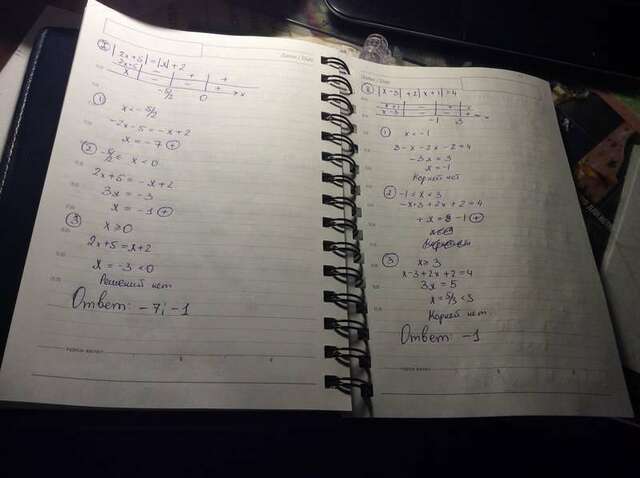 |2x+5| = |x| + 2
-5/2 0 x
① x < -5/2
-2x-5 = -x+2
x = -7 (+)
② -5/2 ≤ x < 0
2x+5 = -x+2
3x = -3
x = -1 (+)
③ x ≥ 0
2x+5 = x+2
x = -3 < 0
Решений нет
Ответ: -7; -1
|x-3| + 2|x+1| = 4
x+1 - + +
x-3 - - +
-1 3 x
① x < -1
3-x-2x-2=4
-3x = 3
x = -1
Корней нет
② -1 ≤ x < 3
-x+3+2x+2=4
-1 (+)
③ x ≥ 3
x-3+2x+2=4
3x = 5
x = 5/3 < 3
Корней нет
Ответ: -1